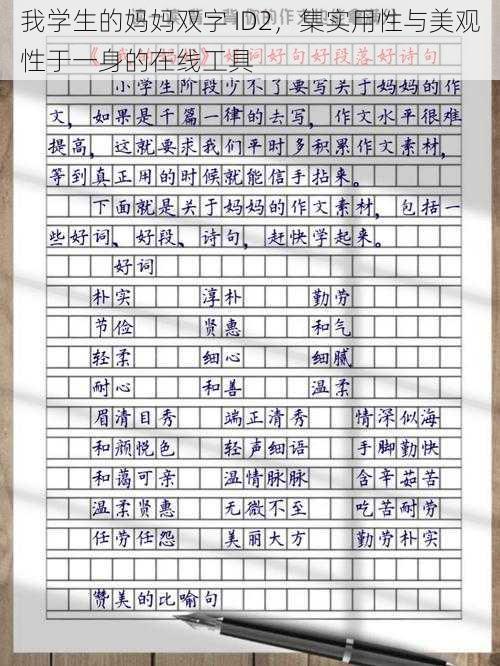 我学生的妈妈双字 ID2，集实用性与美观
性于一身的在线工具
好词好句好段落好诗句
小学生阶段少不了要写关于妈妈的作
文，如果是千篇一律的去写，作文水平很难
提高，这就要求我们平时多积累作文素材，
等到真正用的时候就能信手拈来。
下面就是关于妈妈的作文素材，包括一
些好词、好段、诗句，赶快学起来。
好词
朴实 淳朴 勤劳
节俭 贤惠 和气
轻柔 细心 细腻
耐心 和善 温柔
眉清目秀 端正清秀 情深似海
和颜悦色 轻声细语 手脚勤快
和蔼可亲 温情脉脉 含辛茹苦
温柔贤惠 无微不至 吃苦耐劳
任劳任怨 美丽大方 勤劳朴实
赞美的比喻句